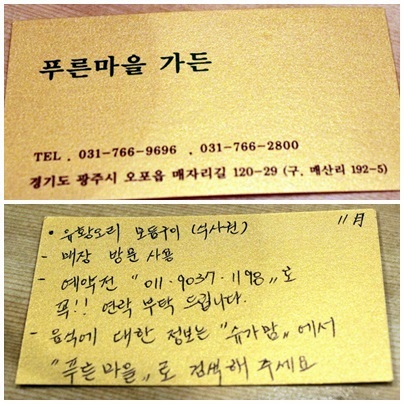 푸른마을 가든
TEL . 031-766-9696 . 031-766-2800
경기도 광주시 오포읍 매자리길 120-29 (구. 매산리 192-5)
• 유황오리 모둠구이 (식사권) 11月
- 매장 방문 사용
- 예약전 "011·9037·1198"로
꼭!! 연락 부탁 드립니다.
- 음식에 대한 정보는 "슈가맘"에서
"푸른마을"로 검색해 주세요